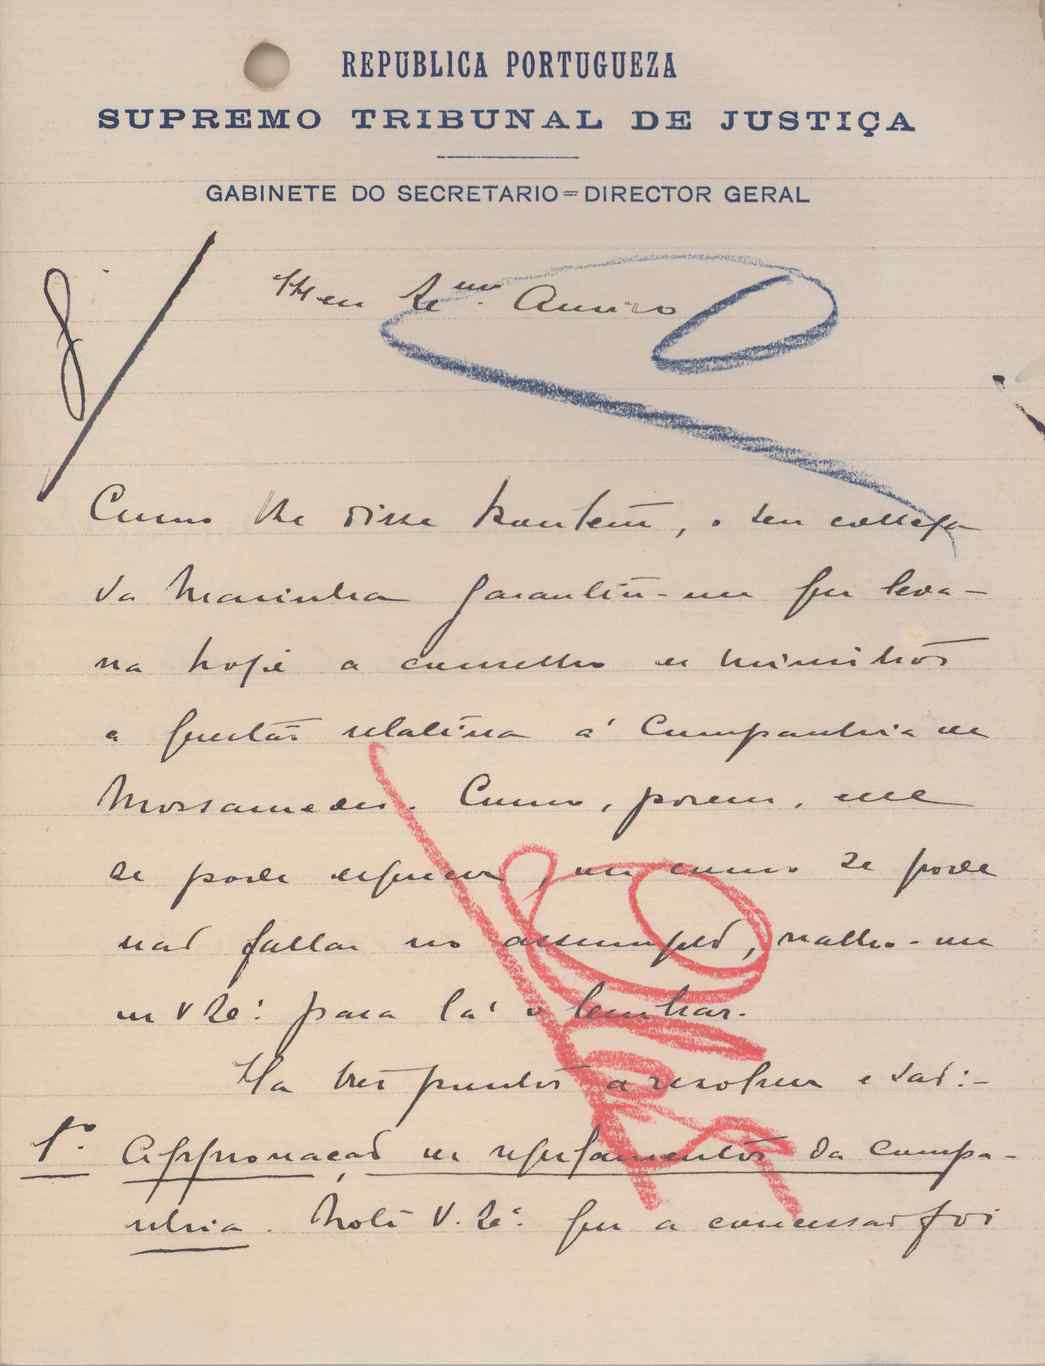 REPUBLICA PORTUGUEZA
SUPREMO TRIBUNAL DE JUSTIÇA
GABINETE DO SECRETARIO=DIRECTOR GERAL
Meu Exmo. Amigo
Como lhe disse hontem, o seu collega
da Marinha garantiu-me que leva-
ria hoje a conselho de ministros
a questão relativa á Companhia de
Mossamedes. Como, porem, elle
se pode esquecer, ou como se pode
não fallar no assumpto, valho-me
de V Exª. para lá o lembrar.
Ha tres pontos a resolver e são:-
1º. Approvação de regulamentos da compa-
nhia. Note V. Exª. que a concessão foi